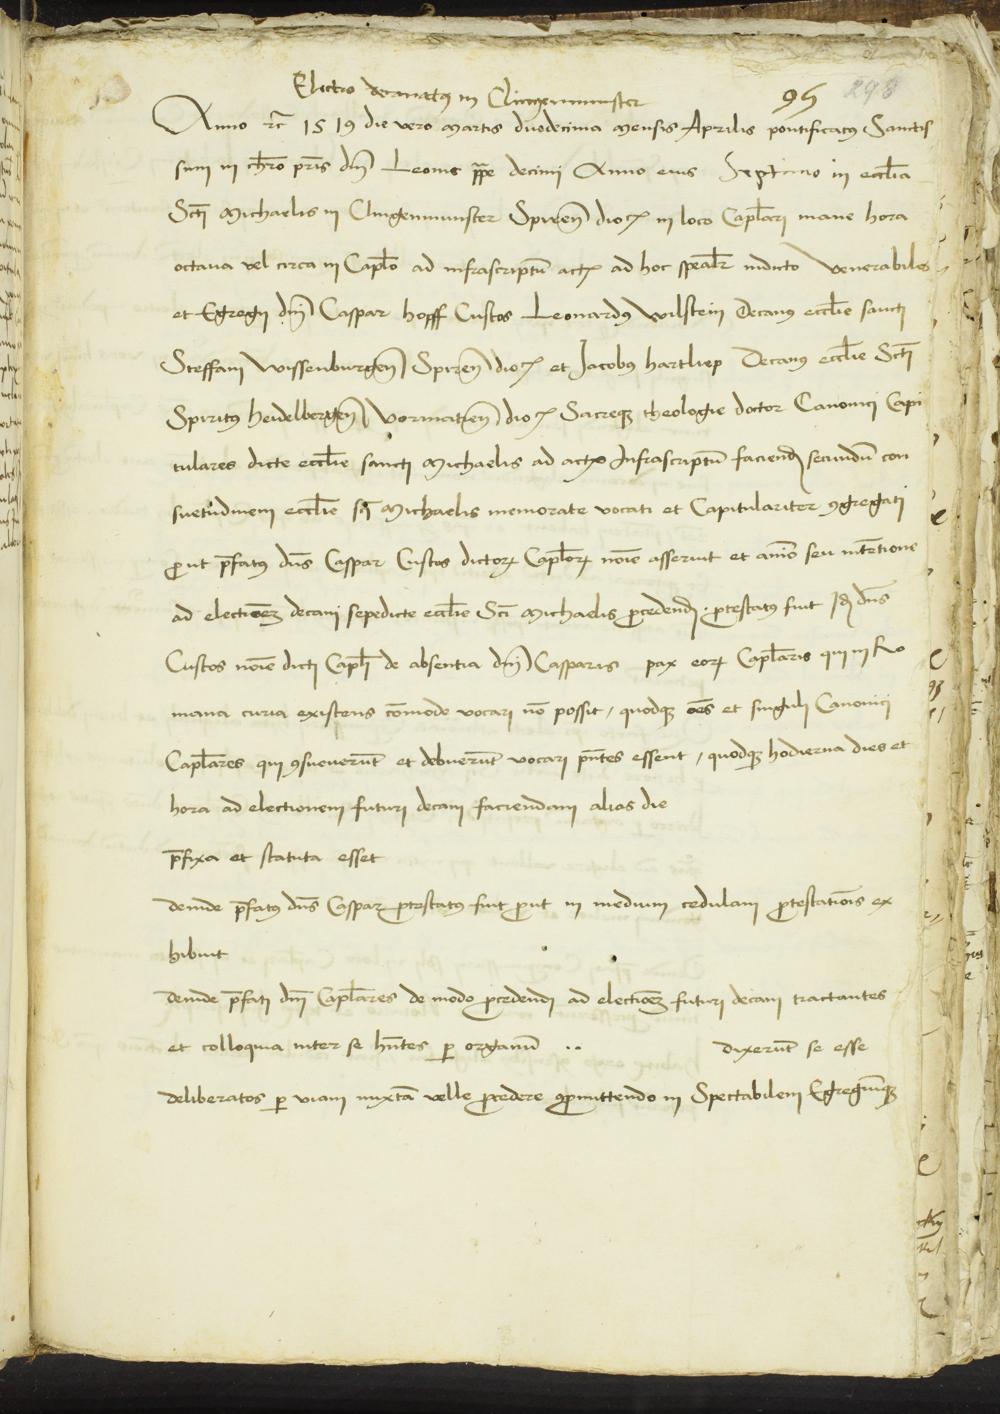 Electio decanatus in Clingenmunster
95 298
Anno etc 1519 die vero martis duodecima mensis Aprilis pontificatus Sanctis
simi in chro pris dni Leonis ppe decimi Anno eius Septimo in ecclia
Scti Michaelis in Clingenmunster Spiren dioc in loco Caplari mane hora
octaua vel circa in Caplo ad infrascriptu actu ad hoc spealr indicto Venerabiles
et Egregij dni Caspar hopff Custos Leonardus Wilstein Decanus ecclie sancti
Steffani Wissenburgen Spiren dioc et Jacobus hartliep Decanus ecclie Scti
Spiritus heidelbergen Wormatien dioc Sacreque theologie doctor Canonici Capi
tulares dicte ecclie sancti Michaelis ad actu Infrascriptu faciend secundu con
suetudinem ecclie sti Michaelis memorate vocati et Capitulariter 9gregati
prout pfatus dns Caspar Custos dictor Caplor noie asseruit et animo seu intetione
ad electioem decani sepedicte ecclie Sci Michaelis procedendi protestatus fuit Id dns
Custos noie dicti Capli de absentia dni Casparis pax eor Caplaris qui in Ro
mana curia existens comode vocari no possit / quodque oes et singuli Canonici
Caplares qui 9sueuerut et debuerut vocari pntes essent / quodque hodierna dies et
hora ad electionem futuri decani faciendam alias die
pfixa et statuta esset
deinde pfatus dns Caspar protestatus fuit prout in medium cedulam protestationis ex
hibuit
deinde pfati dni Caplares de modo procedendi ad electioem futuri decani tractantes
et colloquia inter se hntes per organu .. dixerut se esse
deliberatos per viam mixta velle procedere 9promittendo in Spectabilem Egregiuque